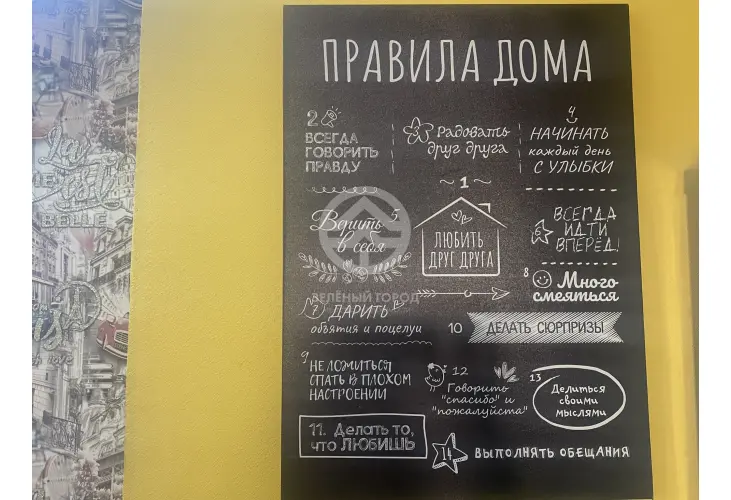 ПРАВИЛА ДОМА
~ 1 ~
ЛЮБИТЬ
ДРУГ ДРУГА
2
ВСЕГДА
ГОВОРИТЬ
ПРАВДУ
3 Радовать
друг друга
4
НАЧИНАТЬ
каждый день
С УЛЫБКИ
Верить 5
в себя
6 ВСЕГДА
ИДТИ
ВПЕРЁД!
ЗЕЛЁНЫЙ ГОРОД
7 ДАРИТЬ
объятия и поцелуи
8 Много
смеяться
9
НЕ ЛОЖИТЬСЯ
СПАТЬ В ПЛОХОМ
НАСТРОЕНИИ
10 ДЕЛАТЬ СЮРПРИЗЫ
11. Делать то,
что ЛЮБИШЬ
12
Говорить
"спасибо" и
"пожалуйста"
13
Делиться
своими
мыслями
14 ВЫПОЛНЯТЬ ОБЕЩАНИЯ
BELLE